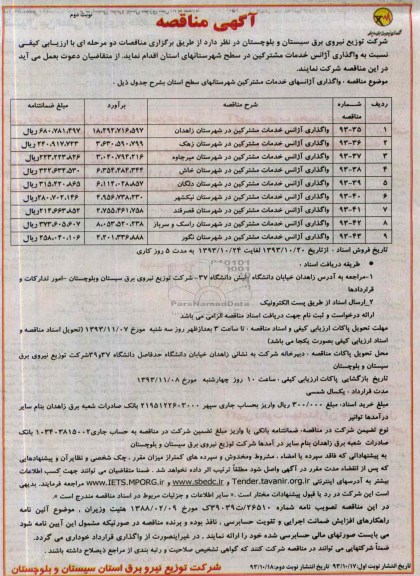 نوبت دوم
آگهی مناقصه
شرکت توزیع نیروی برق سیستان و بلوچستان در نظر دارد از طریق برگزاری مناقصات دو مرحله ای با ارزیابی کیفی
نسبت به واگذاری آژانس خدمات مشترکین در سطح شهرستانهای استان اقدام نماید. از متقاضیان دعوت بعمل می آید
در این مناقصه شرکت نمایند.
موضوع مناقصه : واگذاری آژانسهای خدمات مشترکین شهرستانهای سطح استان بشرح جدول ذیل :
ردیف شماره مناقصه شرح مناقصه برآورد مبلغ ضمانتنامه
۱ ۹۳-۳۵ واگذاری آژانس خدمات مشترکین در شهرستان زاهدان ۱۸,۲۹۲,۷۱۶,۵۹۷ ۶۸۰,۷۸۱,۴۹۷ ریال
۲ ۹۳-۳۶ واگذاری آژانس خدمات مشترکین در شهرستان زهک ۳,۶۳۰,۵۹۰,۷۹۹ ۲۴۰,۹۱۷,۷۲۳ ریال
۳ ۹۳-۳۷ واگذاری آژانس خدمات مشترکین در شهرستان میرجاوه ۳,۰۲۰,۷۹۲,۲۱۶ ۲۲۳,۲۲۳,۸۲۶ ریال
۴ ۹۳-۳۸ واگذاری آژانس خدمات مشترکین در شهرستان خاش ۶,۳۵۲,۴۸۲,۳۴۴ ۳۲۲,۶۲۴,۵۳۰ ریال
۵ ۹۳-۳۹ واگذاری آژانس خدمات مشترکین در شهرستان دلگان ۶,۱۱۲,۰۲۸,۸۵۷ ۳۱۵,۴۲۰,۸۶۵ ریال
۶ ۹۳-۴۰ واگذاری آژانس خدمات مشترکین در شهرستان نیکشهر ۴,۹۵۶,۷۳۸,۲۳۰ ۲۸۰,۷۰۲,۱۴۶ ریال
۷ ۹۳-۴۱ واگذاری آژانس خدمات مشترکین در شهرستان قصرقند ۲,۷۵۵,۴۶۱,۷۵۸ ۲۱۴,۶۶۳,۸۵۲ ریال
۸ ۹۳-۴۲ واگذاری آژانس خدمات مشترکین در شهرستان راسک و سرباز ۸,۰۵۳,۵۲۰,۲۳۸ ۳۷۳,۶۰۵,۶۰۷ ریال
۹ ۹۳-۴۳ واگذاری آژانس خدمات مشترکین در شهرستان نگور ۴,۲۰۱,۳۳۶,۸۸۸ ۲۵۸,۰۴۰,۱۰۶ ریال
تاریخ فروش اسناد : ازتاریخ ۱۳۹۳/۱۰/۲۰ لغایت ۱۳۹۳/۱۰/۲۴ به مدت ۵ روز کاری
طریقه دریافت اسناد :
۱-مراجعه به آدرس زاهدان خیابان دانشگاه نبش دانشگاه ۳۷- شرکت توزیع نیروی برق سیستان وبلوچستان -امور تدارکات و
قراردادها
۲-ارسال اسناد از طریق پست الکترونیک
ارائه درخواست و ثبت نام جهت دریافت اسناد مناقصه الزامی می باشد
مهلت تحویل پاکات ارزیابی کیفی و اسناد مناقصه : تا ساعت ۳ بعدازظهر روز سه شنبه مورخ ۱۳۹۳/۱۱/۰۷ (تحویل اسناد مناقصه و
اسناد ارزیابی کیفی بصورت یکجا می باشد)
محل تحویل پاکات مناقصه : دبیرخانه شرکت به نشانی زاهدان خیابان دانشگاه حدفاصل دانشگاه ۳۷و۳۹شرکت توزیع نیروی برق
سیستان و بلوچستان
تاریخ بازگشایی پاکات ارزیابی کیفی : ساعت ۱۰ روز چهارشنبه مورخ ۱۳۹۳/۱۱/۰۸
مدت قرارداد : یکسال شمسی
مبلغ خرید اسناد: مبلغ ۳۰۰/۰۰۰ ریال واریز بحساب جاری سپهر ۲۱۹۵۱۲۲۶-۳۰۰۰ بانک صادرات شعبه برق زاهدان بنام سایر
درآمدها توانیر
نوع تضمین شرکت در مناقصه: ضمانتنامه بانکی یا واریز مبلغ تضمین شرکت در مناقصه به حساب جاری ۱۰۳۴۰۳۸۱۵۰۰۲ بانک
صادرات شعبه برق زاهدان بنام سایر در آمدها شرکت توزیع نیروی برق سیستان و بلوچستان
به پیشنهاداتی که فاقد سپرده یا امضاء ، مشروط ومخدوش و سپرده های کمتراز میزان مقرر ، چک شخصی و نظایرآن و پیشنهادهایی
که پس از انقضاء مدت مقرر در آگهی واصل شود مطلقاً ترتیب اثر داده نخواهد شد . ضمنا متقاضیان می توانند جهت کسب اطلاعات
بیشتر به آدرسهای اینترنتی Tender.tavanir.org.ir و www.sbedc.ir و www.IETS.MPORG.ir مراجعه فرمایند. بدیهی
است این شرکت در رد یا قبول پیشنهادات مختار است « سایر اطلاعات و جزئیات مربوط در اسناد مناقصه مندرج است ».
در این مناقصه تصویب نامه شماره ۲۶۵۱۰/ت۳۹۰۳۹ک مورخ ۱۳۸۸/۰۲/۰۹ هئیت وزیران ، موضوع آئین نامه
راهکارهای افزایش ضمانت اجرایی و تقویت حسابرسی ، نافذ بوده و برنده مناقصه در صورتیکه مشمول این آیین نامه شود
می بایست صورتهای مالی حسابرسی شده خود را ارائه نمایند . در غیراینصورت از واگذاری قرارداد خودداری می گردد.
ضمناً شرکتهایی می توانند در مناقصه شرکت کنند که گواهی تشخیص صلاحیت و رتبه بندی از مراجع ذیصلاح داشته باشند .
تاریخ انتشار نوبت اول: ۹۳/۱۰/۱۷ تاریخ انتشار نوبت دوم: ۹۳/۱۰/۱۸
شرکت توزیع نیرو برق استان سیستان و بلوچستان